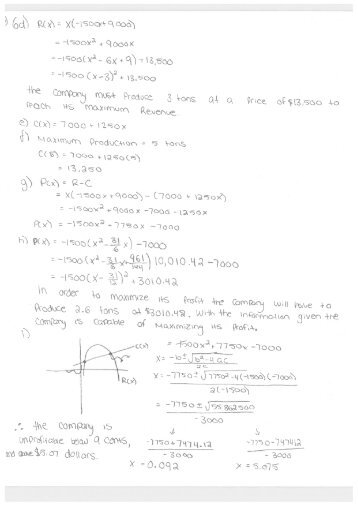 6d) R(x) = x(-1500x+9000)
= -1500x² + 9000x
= -1500(x² - 6x + 9) + 13,500
= -1500 (x-3)² + 13,500
the company must produce 3 tons at a price of $13,500 to
reach its maximum Revenue.
e) C(x) = 7000 + 1250x
f) Maximum production = 5 tons
C(5) = 7000 + 1250(5)
= 13,250
g) P(x) = R-C
= x(-1500x+9000) - (7000 + 1250x)
= -1500x² + 9000x - 7000 - 1250x
P(x) = -1500x² - 7750x - 7000
h) P(x) = -1500(x² - 31/6 x) - 7000
= -1500(x² - 31/6 x + 961/144) 10,010.42 - 7000
= -1500(x - 31/12)² + 3010.42
In order to maximize its profit the company will have to
produce 2.6 tons at $3010.42. With the information given the
company is capable of maximizing its profits.
i)
C(x)
R(x)
= -1500x² + 7750x - 7000
x = -b ± √b² - 4ac / 2a
x = -7750 ± √7750² - 4(-1500)(-7000) / 2(-1500)
= -7750 ± √55862500 / -3000
∴ the company is
unprofitable below 9 cents,
and above $5.07 dollars.
-7750 + 7474.12 / -3000
x = 0.092
-7750 - 7474.12 / -3000
x = 5.075